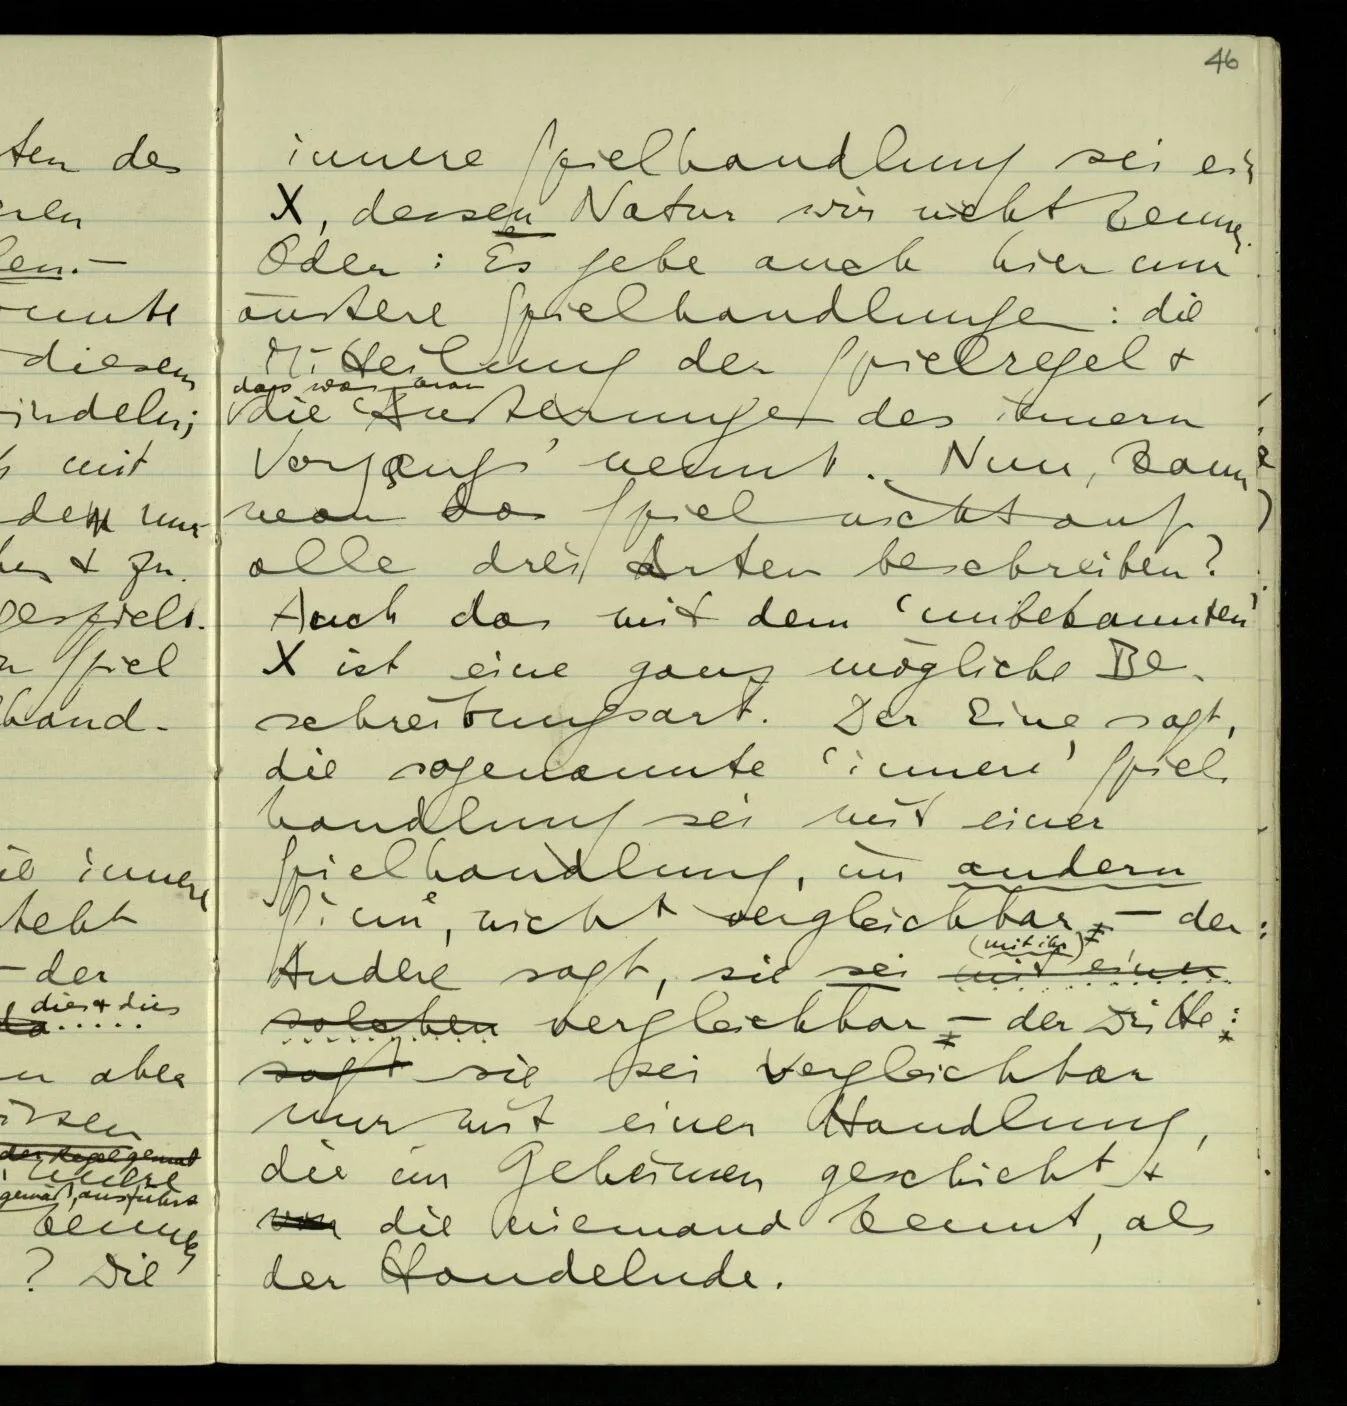 46
ten des
eren
len. –
onnte
diesem
indeln;
mit
den nur
& zu.
gespielt.
Spiel
hand-
innere
steht
– der
dies & dies
da .....
aber
issen
der Regel gemäß
innere
gemäß, ausführe
kennen
? Die
innere Spielhandlung sei ein
X, dessen Natur wir nicht kennen.
Oder: Es gebe auch hier nur
äußere Spielhandlungen: die
Mitteilung der Spielregel &
das was man
die 'Äußerungen des innern
Vorgangs' nennt. Nun, kann
man das Spiel nicht auf
alle drei Arten beschreiben?
Auch das mit dem 'unbekannten'
X ist eine ganz mögliche Be-
schreibungsart. Der Eine sagt,
die sogenannte 'innere' Spiel-
handlung sei mit einer
Spielhandlung, im andern
Sinne, nicht vergleichbar – der
(mit ihr)
Andere sagt, sie sei mit einer
solchen vergleichbar – der Dritte:
sagt sie sei vergleichbar
nur mit einer Handlung,
die im Geheimen geschieht &
von die niemand kennt, als
der Handelnde.